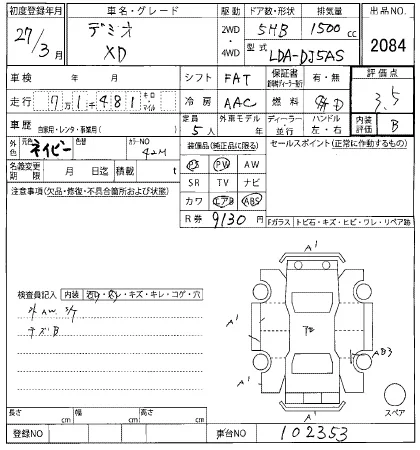 初度登録年月 車名・グレード 駆動 ドア数・形状 排気量 出品NO.
27/3月 デミオ XD 2WD・4WD 5HB 1500cc 2084
型式 LDA-DJ5AS
車検 年 月 シフト FAT 保証書 有・無 評価点
走行 7万1千481 キロ・マイル 冷房 AAC 燃料 3.5
車歴 自家用・レンタ・事業用( ) 定員 5人 外車モデル年 ディーラー・並行 ハンドル 左・右 内装評価 B
外色 元色 ネイビー 色替 カラーNO 42M 装備品(純正品に限る) セールスポイント(正常に作動するもの)
名義変更期限 月 日迄 積載 t PS PW AW
注意事項(欠品・修復・不具合箇所および状態) SR TV ナビ
カワ エアB ABS
R券 9130円 Fガラス トビ石・キズ・ヒビ・ワレ・リペア跡
検査員記入 内装 ・キズ・キレ・コゲ・穴
A1
A1
A1
A1
キズB
スペア
長さ cm 幅 cm 高さ cm
登録NO 車台NO 102353